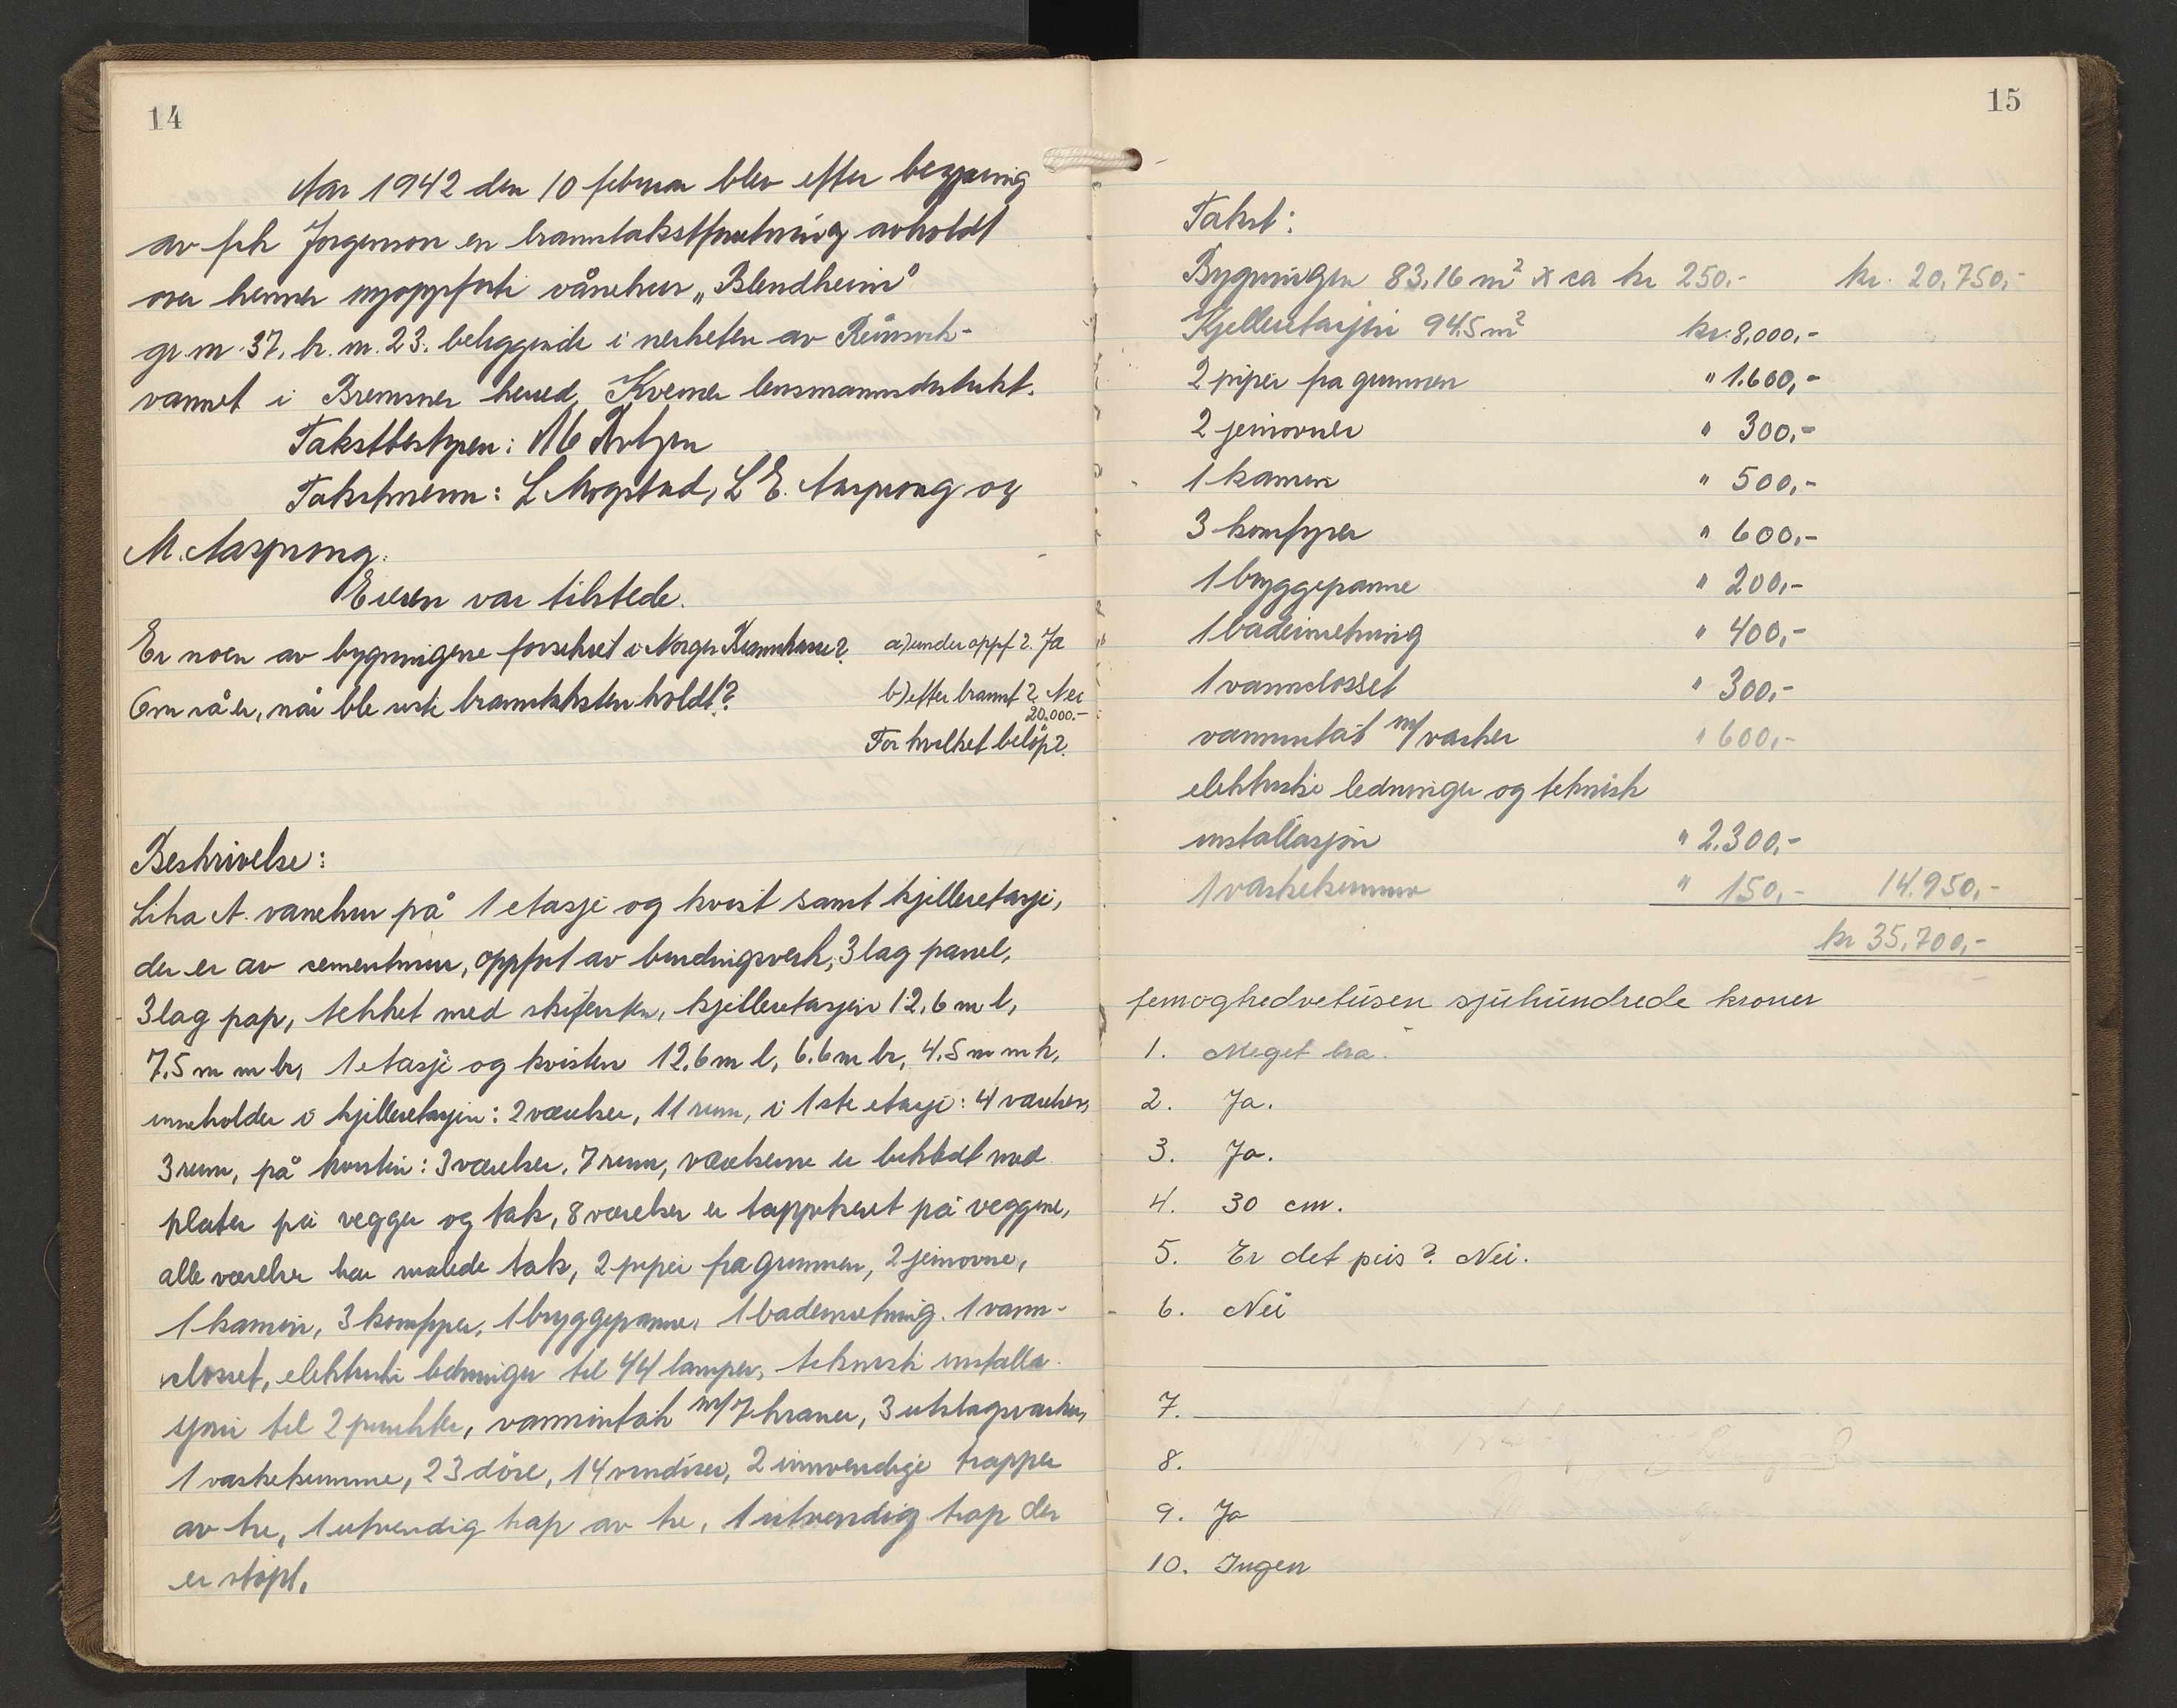 14
Aar 1942 den 10 februar blev efter begjæring
av frk Jorgenson en branntakstforretning avholdt
over hennes nyoppførte vånehus „Blendheim"
gr. nr. 37, br. nr. 23. beliggende i nerheten av
vannet i Bremsnes herred, Kvernes lensmannsdistrikt.
Takstbestyrer:
Takstmenn: L Mogstad, L E. Aasprong og
M. Aasprong.
Eieren var tilstede.
Er noen av bygningene forsikret i Norges Brannkasse? a) under oppf ?. Ja
Om så er, når ble siste branntaksten holdt? b) efter brannt ? Nei
20.000.-
For hvilket belöp?
Beskrivelse:
Litra A. vånehus på 1 etasje og kvist samt kjelleretasje,
der er av sementmur, oppført av bindingsverk, 3 lag panel,
3 lag pap, tekket med skifersten, kjelleretasjen 12,6 m l,
7,5 m m br, 1 etasje og kvisten 12,6 m l, 6.6 m br, 4,5 m m h,
inneholder i kjelleretasjen: 2 værelser, 11 rum, i 1ste etasje: 4 værelser,
3 rum, på kvisten: 3 værelser, 7 rum, værelserne er bekledt med
plater på vegger og tak, 8 værelser er tappetseret på veggene,
alle værelser har malede tak, 2 piper fra grunnen, 2 jernovne,
1 kamin, 3 komfyrer, 1 bryggepanne, 1 badeinretning. 1 vann-
closset, elektriske ledninger til 44 lamper, teknisk installa
sjon til 2 punkter, vanninntak m/ 7 kraner, 3 utslagsvasker,
1 vaskekumme, 23 döre, 14 vinduer, 2 innvendige trapper
av tre, 1 utvendig trap av tre, 1 utvendig trap der
er støpt,
15
Takst:
Bygningen 83,16 m² x ca kr 250.- kr. 20,750,-
Kjelleretasjen 94,5 m² kr. 8,000,-
2 piper fra grunnen " 1.600,-
2 jernovner " 300,-
1 kamin " 500,-
3 komfyrer " 600,-
1 bryggepanne " 200,-
1 badeinretning " 400,-
1 vannclosset " 300,-
vanninntak m/ vasker " 600,-
elektriske ledninger og teknisk
installasjon " 2.300,-
1 vaskekumme " 150,- 14.950,-
kr 35.700,-
femogtredvetusen sjuhundrede kroner
1. Meget bra.
2. Ja.
3. Ja.
4. 30 cm.
5. Er det peis? Nei.
6. Nei
7.
8.
9. Ja
10. Ingen